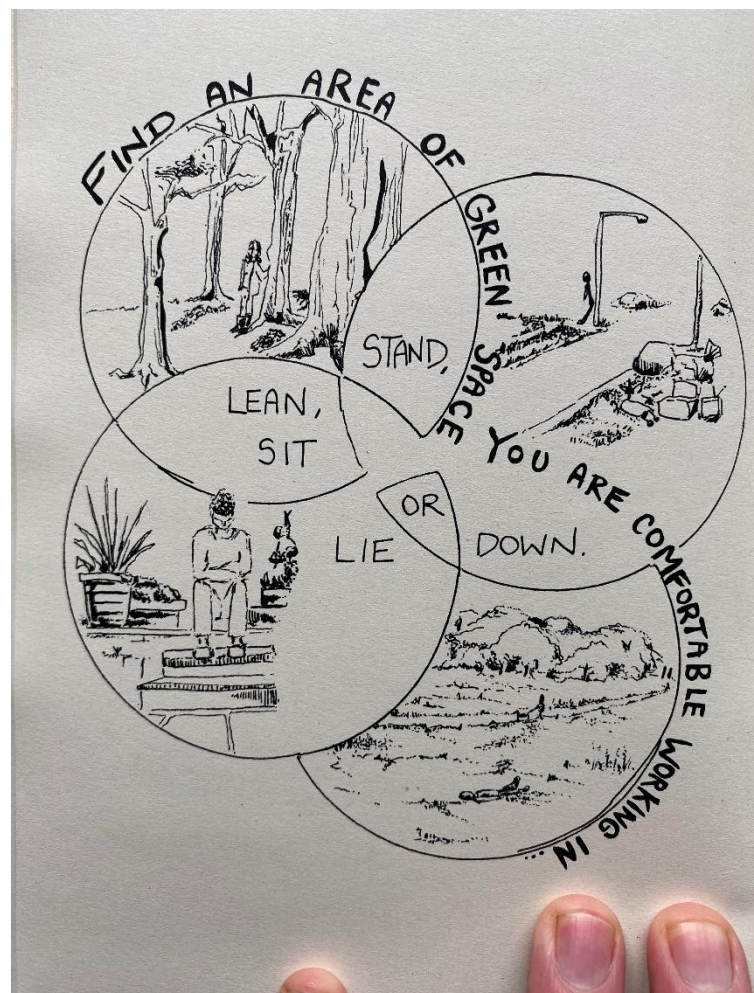 FIND AN AREA OF GREEN SPACE YOU ARE COMFORTABLE WORKING IN...
STAND,
LEAN,
SIT
OR
LIE DOWN.